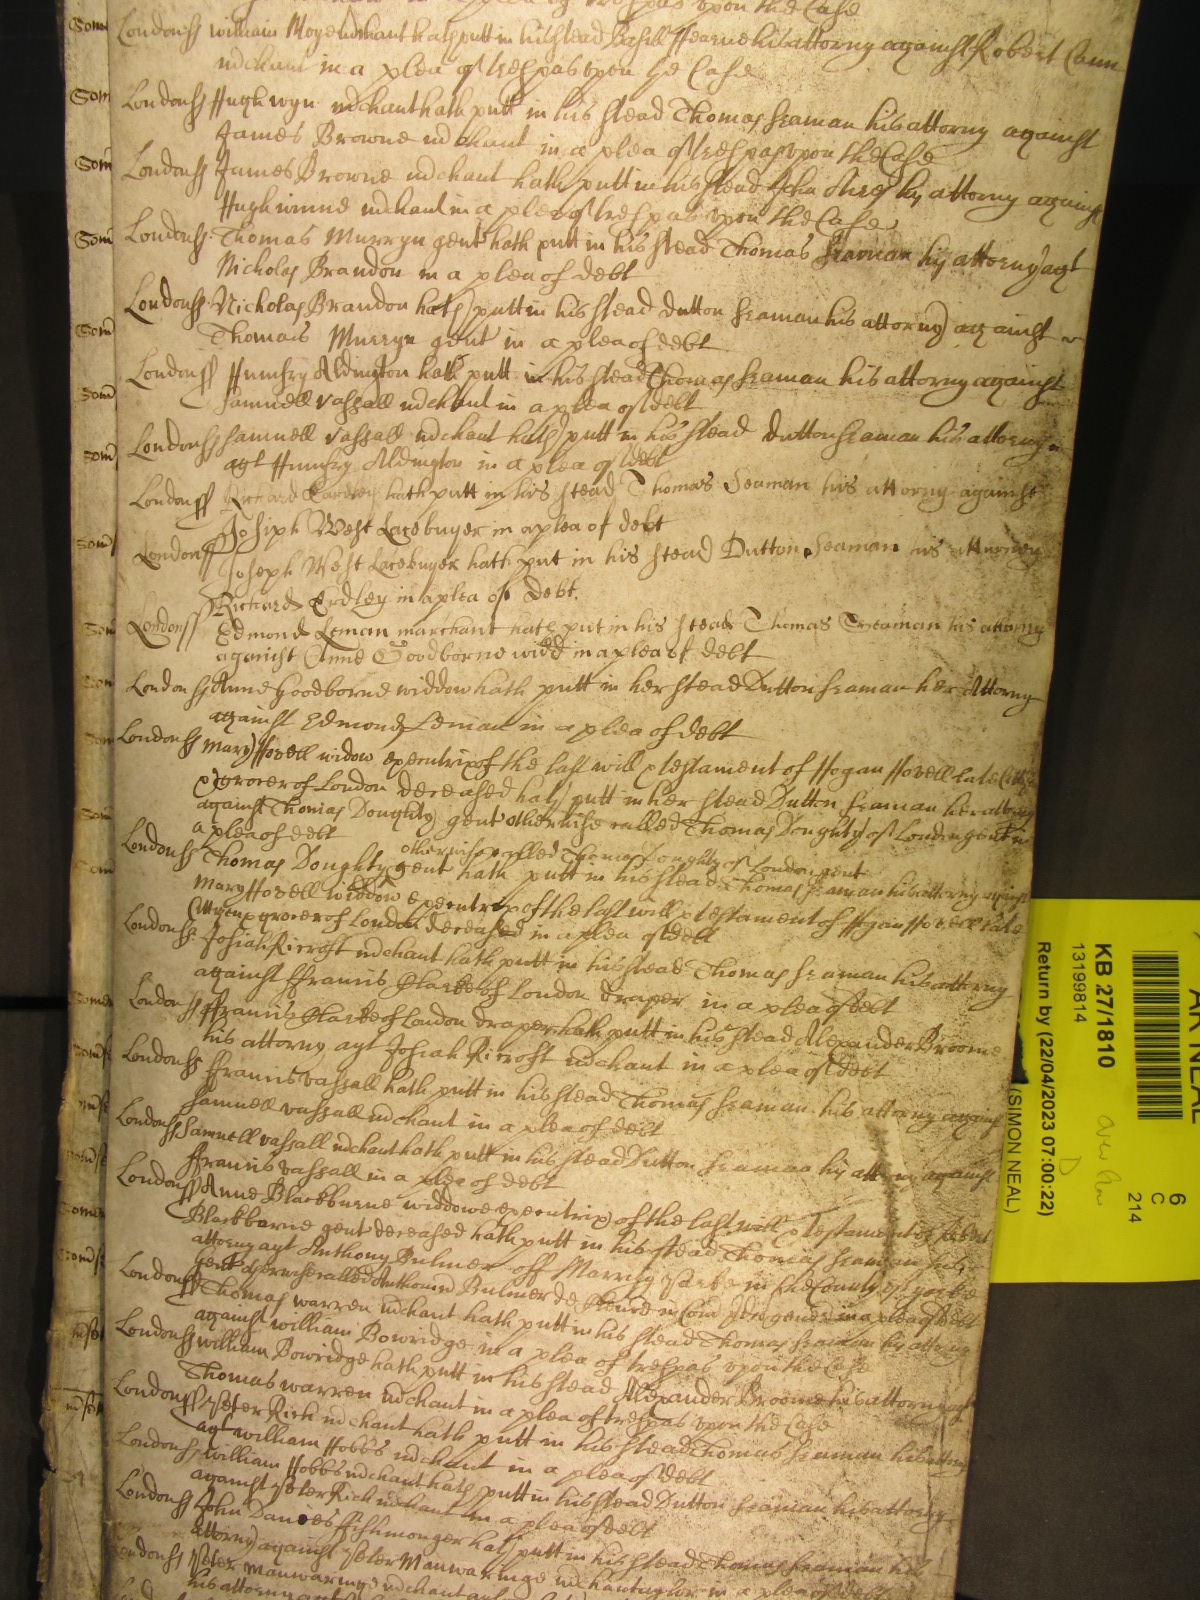 upon the Case
Londonss William Moyer mchant hath putt in his stead Basill Hearne his attorny against Robert Cann
mchant in a plea of trespas upon ye Case
Londonss Hugh Wyn mchant hath putt in his stead Thomas Seaman his attorny against
James Browne mchant in a plea of trespas upon the Case
Londonss James Browne mchant hath putt in his stead his attorny against
Hugh Winne mchant in a plea of trespas upon the Case
Londonss Thomas Murryn gent hath putt in his stead Thomas Seaman his attorny agt
Nicholas Brandon in a plea of debt
Londonss Nicholas Brandon hath putt in his stead Dutton Seaman his attorny against
Thomas Murryn gent in a plea of debt
Londonss Humfry Aldington hath putt in his stead Thomas Seaman his attorny against
Samuell Vassall mchant in a plea of debt
Londonss Samuell Vassall mchant hath putt in his stead Dutton Seaman his attorny
agt Humfry Aldington in a plea of debt
Londonss Richard Eardley hath putt in his stead Thomas Seaman his attorny against
Joseph West Lacebuyer in a plea of debt
Londonss Joseph West Lacebuyer hath put in his stead Dutton Seaman his attorney
Richard Erdley in a plea of debt.
Londonss Edmond Leman marchant hath put in his stead Thomas Seaman his attorny
against Anne Goodborne widd in a plea of debt
Londonss Anne Goodborne widdow hath putt in her stead Dutton Seaman her Attorny
against Edmond Leman in a plea of debt
Londonss Mary Hovell widow executrix of the last will & testament of Hogan Hovell late Citizen
& grocer of London deceased hath putt in her stead Dutton Seaman her attorny
against Thomas Doughty gent otherwise called Thomas Doughty of London gent in
a plea of debt
otherwise called Thomas Doughty of London gent
Londonss Thomas Doughty gent hath putt in his stead Thomas Seaman his attorny against
Mary Hovell widdow executrix of the last will & testament of Hogan Hovell late
Cittizen & grocer of London deceased in a plea of debt
Londonss Josiah Ricroft mchant hath putt in his stead Thomas Seaman his attorny
against Francis Clarke of London draper in a plea of debt
Londonss Francis Clarke of London draper hath putt in his stead Alexander Broome
his attorny agt Josiah Ricroft mchant in a plea of debt
Londonss Francis Vassall hath putt in his stead Thomas Seaman his attorny against
Samuell Vassall mchant in a plea of debt
Londonss Samuell Vassall mchant hath putt in his stead Dutton Seaman his attorny against
Francis Vassall in a plea of debt
Londonss Anne Blackburne widdowe executrix of the last will & testament of
Blackborne gent deceased hath putt in his stead Thomas Seaman
attorny agt Anthony Bulmer of Marrish in the County of yorke
gent otherwise called Anthonie Bulmer de in Com gener in a plea of debt
Londonss Thomas Warren mchant hath putt in his stead Thomas Seaman his attorny
against William Bowridge in a plea of trespas upon the Case
Londonss William Bowridge hath putt in his stead Alexander Broome his attorny agt
Thomas Warren mchant in a plea of trespas upon the Case
Londonss Peter Rich mchant hath putt in his stead Thomas Seaman his attorny
agt William Hobbs mchant in a plea of debt
Londonss William Hobbs mchant hath putt in his stead Dutton Seaman his attorny
against Peter Rich mchant in a plea of debt
Londonss John Davies Fishmonger hath putt in his stead Thomas Seaman his
attorny against Peter Manwaringe mchantaylor in a plea of debt
Londonss Peter Manwaringe
his attorny
KB 27/1810
13199814
Return by (22/04/2023 07:00:22)
(SIMON NEAL)
6
C
214